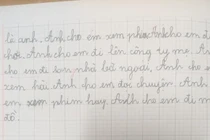 là anh. Anh cho em xem phim. Anh cho em đi
chơi. Anh cho em đi lên công ty mẹ. Anh
cho em đi sang nhà bà ngoại, Anh cho em
xem hài. Anh cho em đọc chuyện. Anh
em xem phim hay. Anh cho em đi
đó.